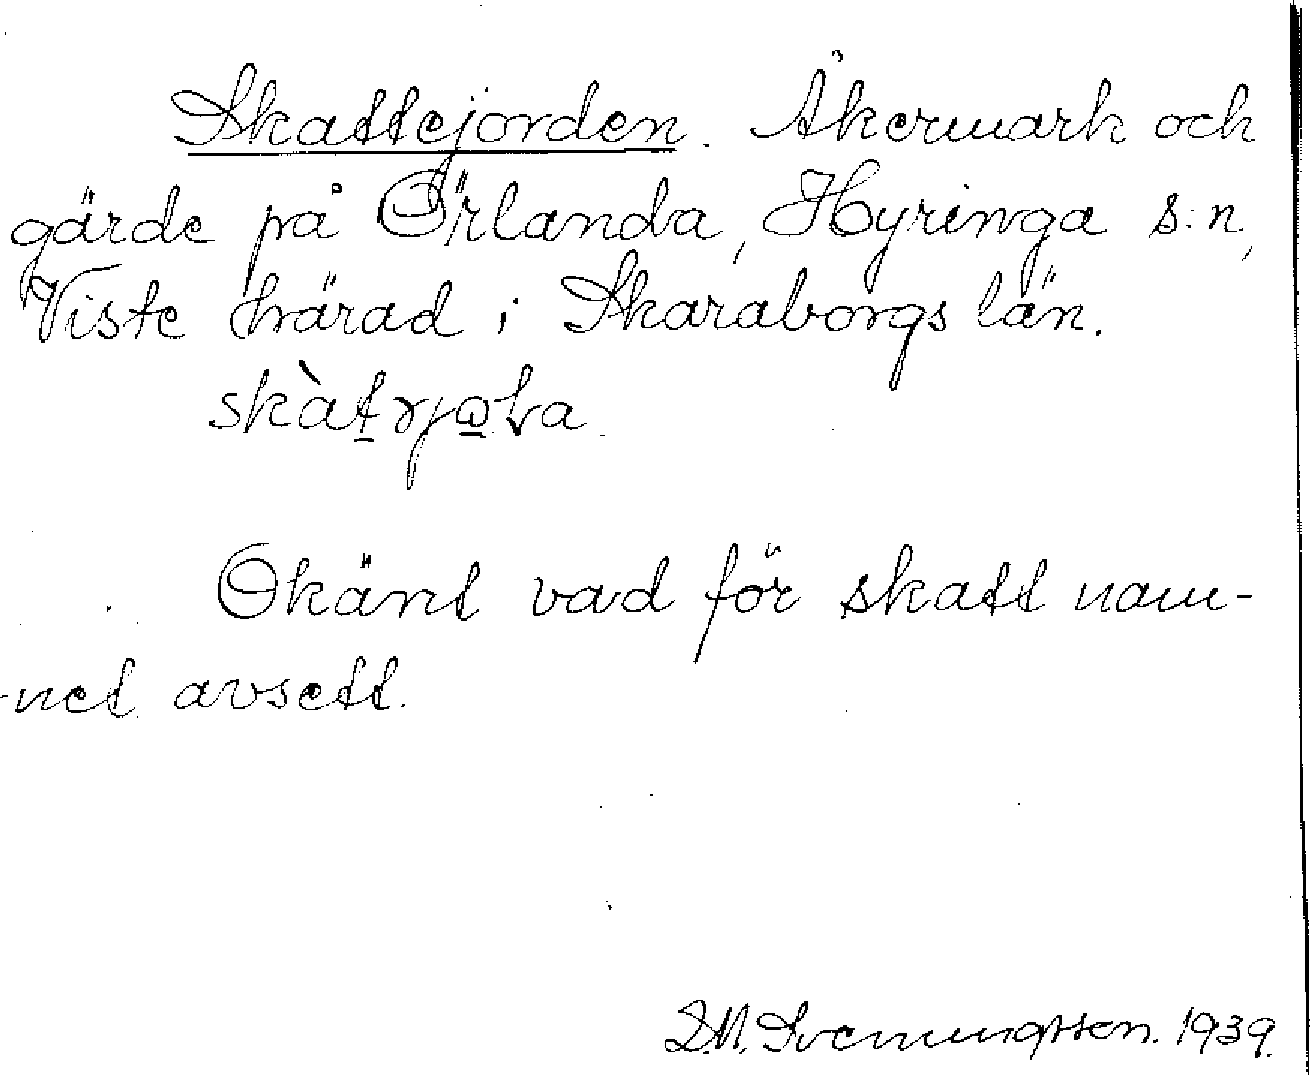 Skattejorden. Åkermark och
gärde på Örlanda, Hyringa s:n,
Viste härad i Skaraborgs län.
Okänt vad för skatt nam-
-net avsett.
Svenungsson. 1939.